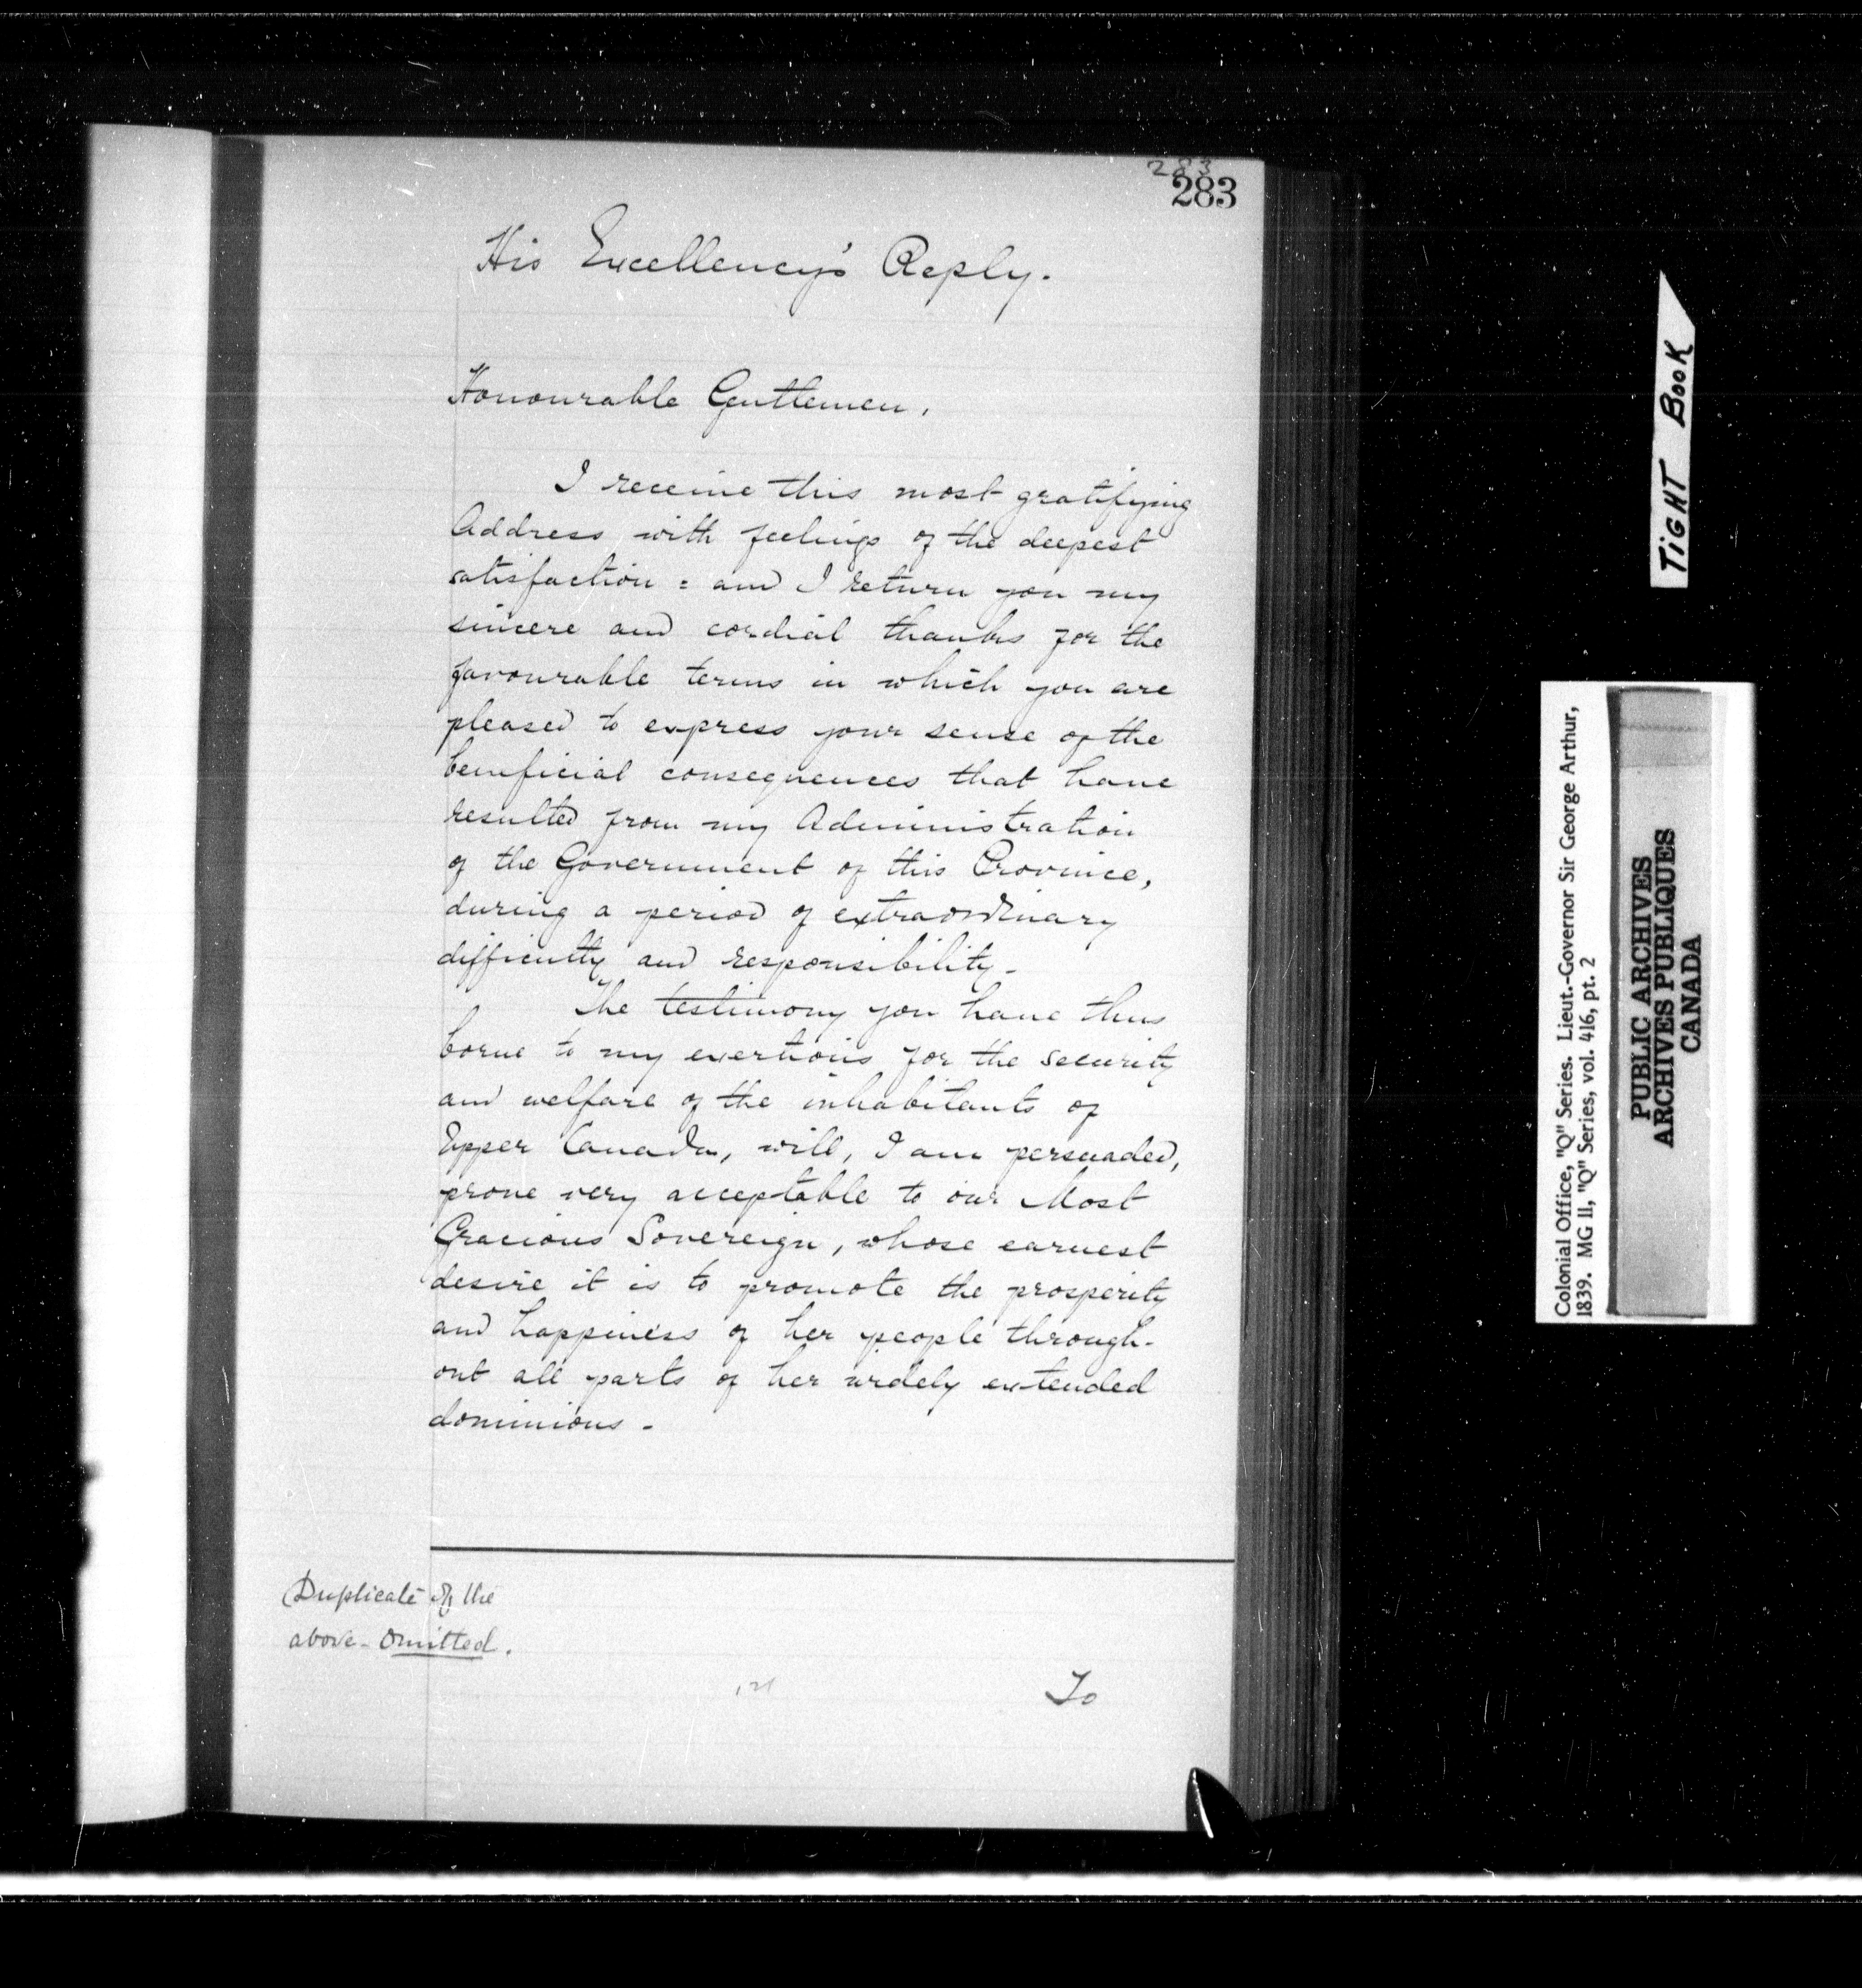 283
283
His Excellency's Reply.
Honourable Gentlemen,
I receive this most gratifying
Address with feelings of the deepest
satisfaction = and I return you my
sincere and cordial thanks for the
favourable terms in which you are
pleased to express your sense of the
beneficial consequences that have
resulted from my Administration
of the Government of this Province,
during a period of extraordinary
difficulty and responsibility -
The testimony you have thus
borne to my exertions for the security
and welfare of the inhabitants of
Upper Canada, will, I am persuaded,
prove very acceptable to our Most
Gracious Sovereign, whose earnest
desire it is to promote the prosperity
and happiness of her people through-
out all parts of her widely extended
dominions -
Duplicate of the
above - Omitted.
To
TIGHT BOOK
Colonial Office, "Q" Series. Lieut.-Governor Sir George Arthur,
1839. MG 11, "Q" Series, vol. 416, pt. 2
PUBLIC ARCHIVES
ARCHIVES PUBLIQUES
CANADA